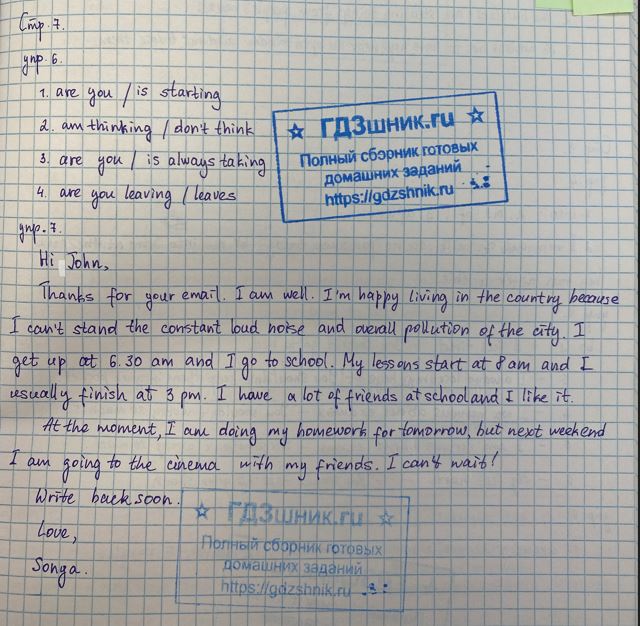 Стр. 7.
упр. 6.
1. are you / is starting
2. am thinking / don't think
3. are you / is always taking
4. are you leaving / leaves
☆ ГДЗшник.ru ☆
Полный сборник готовых
домашних заданий
https://gdzshnik.ru
упр. 7.
Hi John,
Thanks for your email. I am well. I'm happy living in the country because
I can't stand the constant loud noise and overall pollution of the city. I
get up at 6.30 am and I go to school. My lessons start at 8 am and I
usually finish at 3 pm. I have a lot of friends at school and I like it.
At the moment, I am doing my homework for tomorrow, but next weekend
I am going to the cinema with my friends. I can't wait!
Write back soon.
Love,
Songa.
☆ ГДЗшник.ru ☆
Полный сборник готовых
домашних заданий
https://gdzshnik.ru